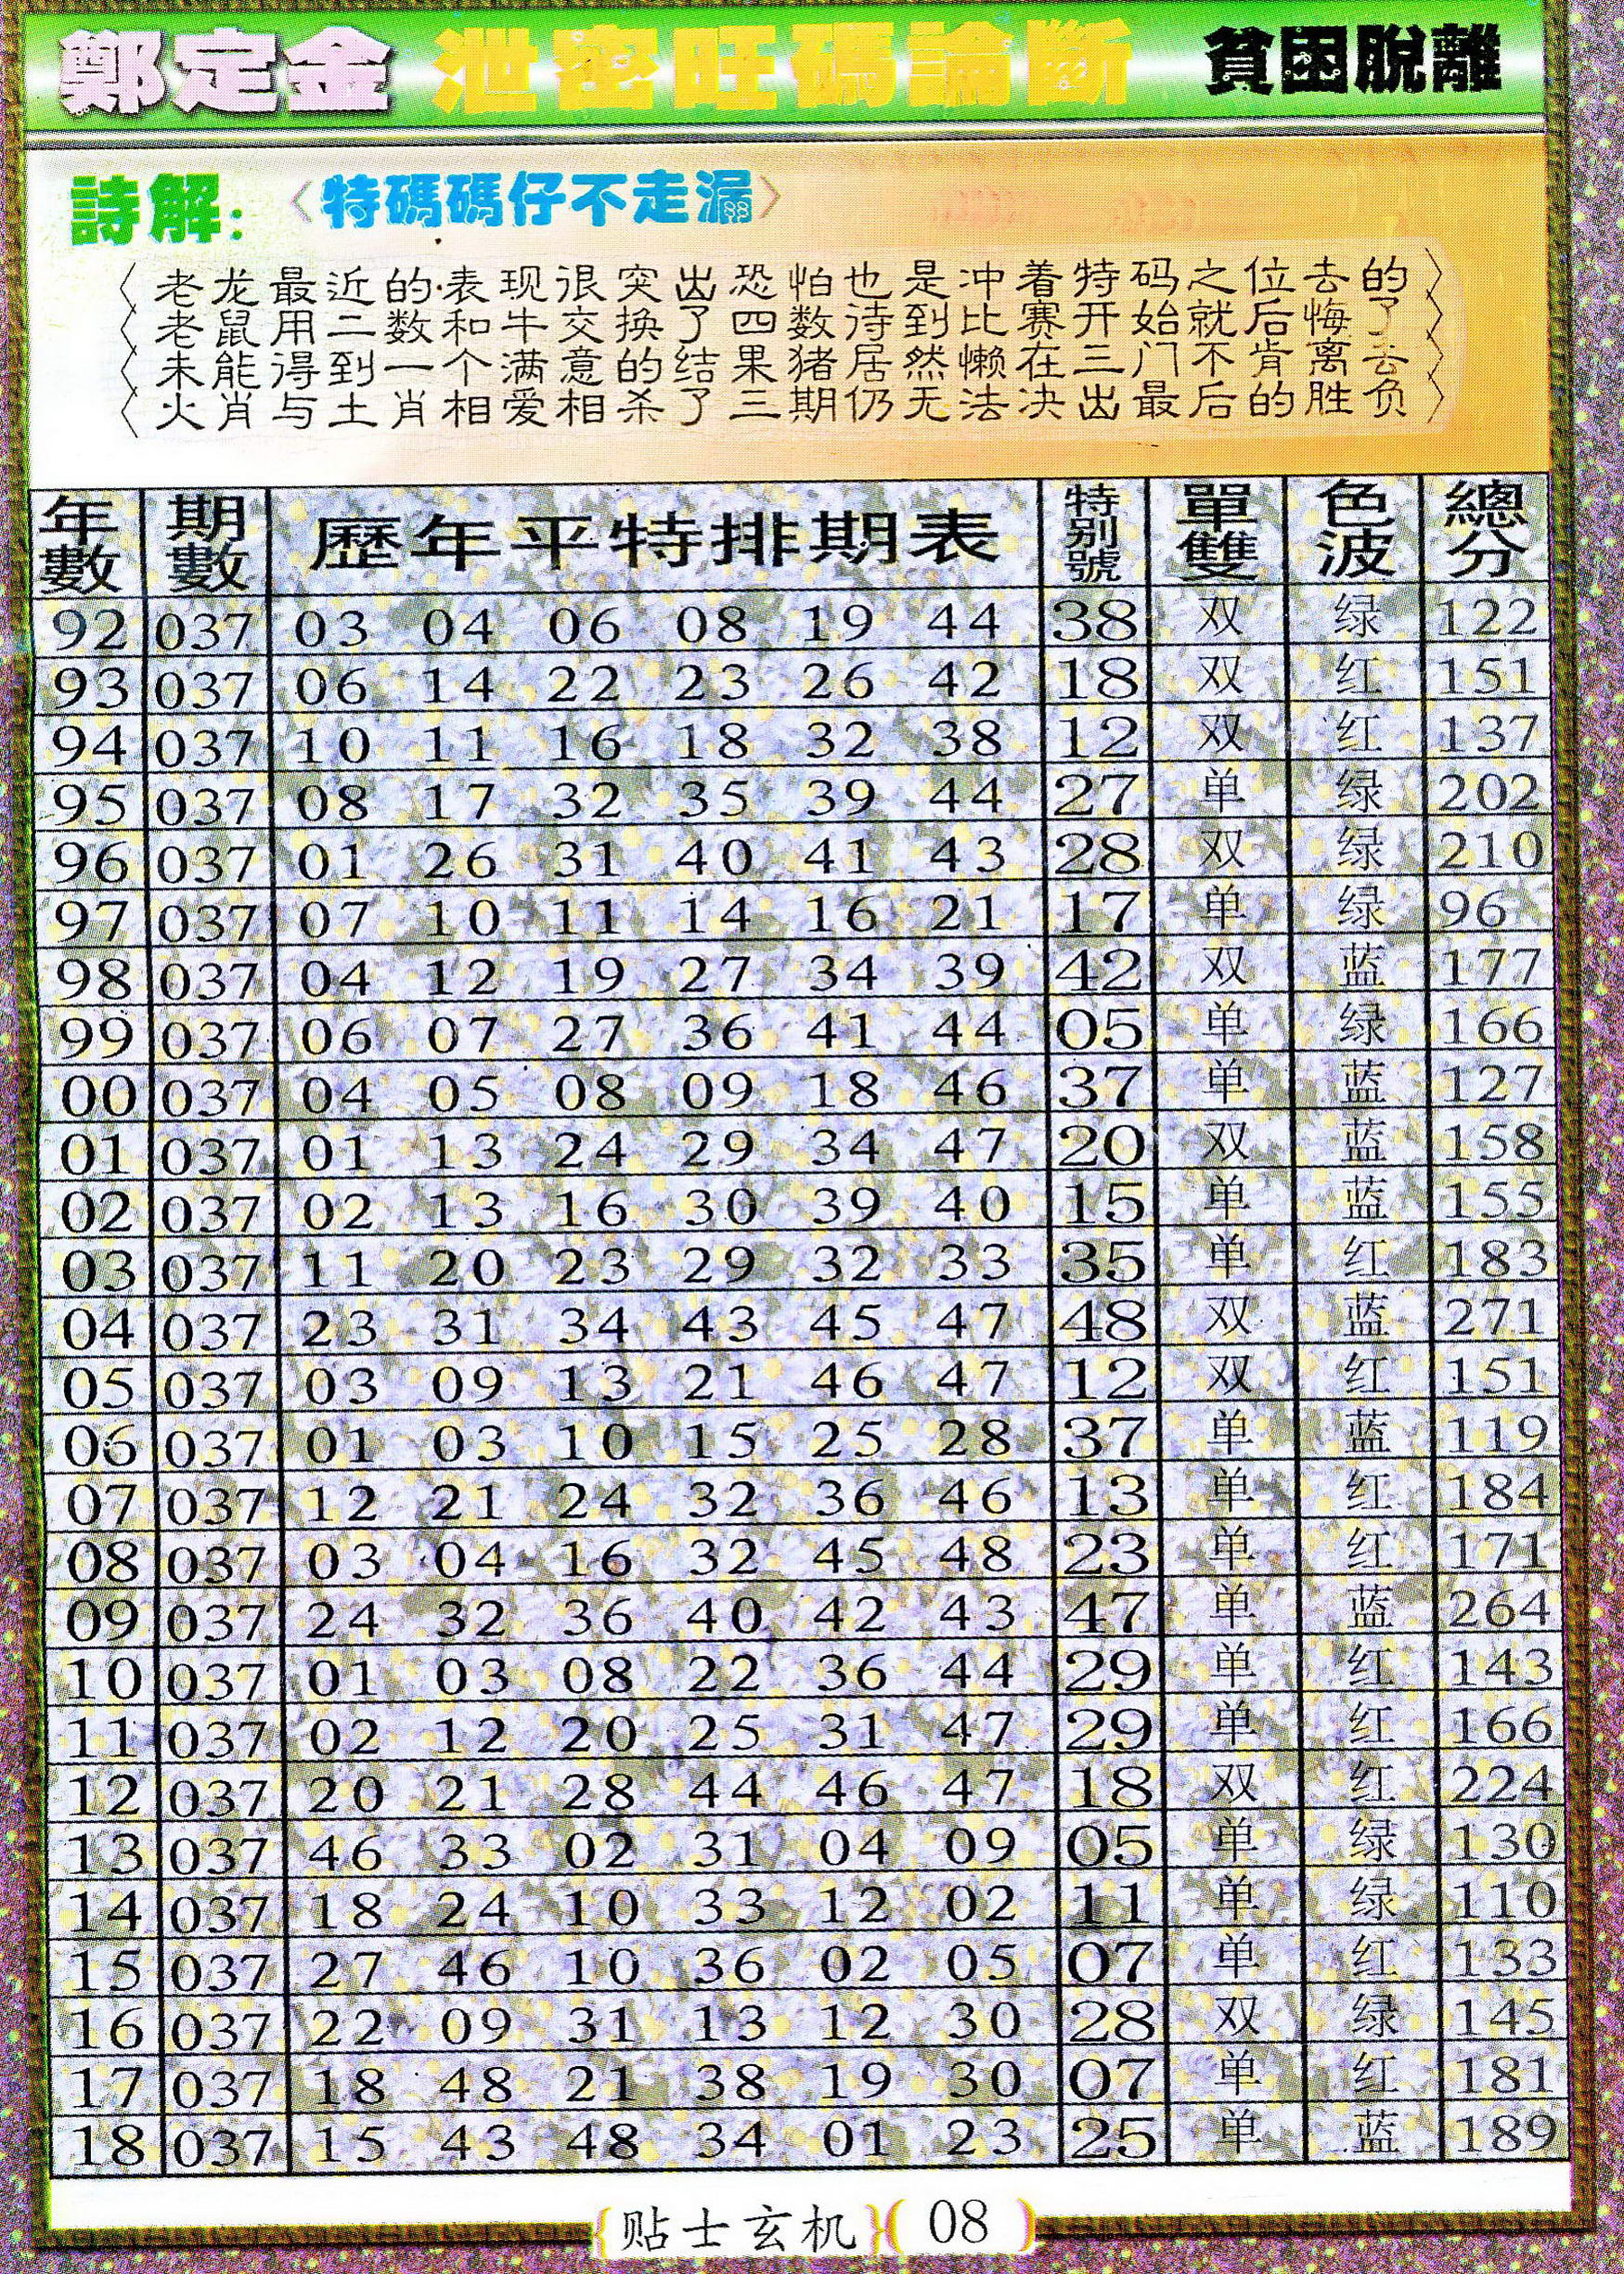 鄭定金 泄密旺碼論斷 貧困脫離
詩解: 〈特碼碼仔不走漏〉
老龙最近的表现很突出恐怕也是冲着特码之位去的
老鼠用二数和牛交换了四数待到比赛开始就后悔了
未能得到一个满意的结果猪居然懒在三门不肯离去
火肖与土肖相爱相杀了三期仍无法决出最后的胜负
年數 期數 歷年平特排期表 特别號 單雙 色波 總分
92 037 03 04 06 08 19 44 38 双 绿 122
93 037 06 14 22 23 26 42 18 双 红 151
94 037 10 11 16 18 32 38 12 双 红 137
95 037 08 17 32 35 39 44 27 单 绿 202
96 037 01 26 31 40 41 43 28 双 绿 210
97 037 07 10 11 14 16 21 17 单 绿 96
98 037 04 12 19 27 34 39 42 双 蓝 177
99 037 06 07 27 36 41 44 05 单 绿 166
00 037 04 05 08 09 18 46 37 单 蓝 127
01 037 01 13 24 29 34 47 20 双 蓝 158
02 037 02 13 16 30 39 40 15 单 蓝 155
03 037 11 20 23 29 32 33 35 单 红 183
04 037 23 31 34 43 45 47 48 双 蓝 271
05 037 03 09 13 21 46 47 12 双 红 151
06 037 01 03 10 15 25 28 37 单 蓝 119
07 037 12 21 24 32 36 46 13 单 红 184
08 037 03 04 16 32 45 48 23 单 红 171
09 037 24 32 36 40 42 43 47 单 蓝 264
10 037 01 03 08 22 36 44 29 单 红 143
11 037 02 12 20 25 31 47 29 单 红 166
12 037 20 21 28 44 46 47 18 双 红 224
13 037 46 33 02 31 04 09 05 单 绿 130
14 037 18 24 10 33 12 02 11 单 绿 110
15 037 27 46 10 36 02 05 07 单 红 133
16 037 22 09 31 13 12 30 28 双 绿 145
17 037 18 48 21 38 19 30 07 单 红 181
18 037 15 43 48 34 01 23 25 单 蓝 189
{贴士玄机}(08)